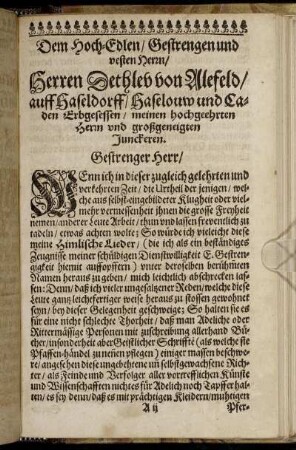 Dem Hoch-Edlen / Gestrengen und
vesten Herrn /
Herren Dethlev von Alefeld /
auff Haseldorff / Haselouw und Ca-
den Erbgesessen / meinen hochgeehrten
Herrn und großgeneigten
Junckeren.
Gestrenger Herr /
WEnn ich in dieser zugleich gelehrten und
verkehrten Zeit / die Urtheil der jenigen / wel-
che aus selbst-eingebildeter Klugheit oder viel-
mehr vermessenheit ihnen die grosse Freyheit
nemen / anderer Leute Arbeit / thun und lassen freventlich zu
tadeln / etwas achten wolte; So würde ich vieleicht diese
meine Himlische Lieder / (die ich als ein beständiges
Zeugnisse meiner schüldigen Dienstwilligkeit E. Gestren-
gigkeit hiemit auffopffern) unter deroselben berühmten
Namen heraus zu geben / mich leichtlich abschrecken las-
sen: Denn / daß ich vieler ungesalzener Reden / welche diese
Leute gantz leichtfertiger weise heraus zu stossen gewohnet
seyn / bey dieser Gelegenheit geschweige; So halten sie es
für eine nicht schlechte Thorheit / daß man Adeliche oder
Rittermässige Personen mit zuschreibung allerhand Bü-
cher / insonderheit aber Geistlicher Schriffte (als welche sie
Pfaffen-händel zu neñen pflegen) einiger massen beschwe-
re / angesehen diese ungebetene uñ selbstgewachsene Rich-
ter / als Feinde und Verfolger aller vortrefflichen Künste
und Wissenschafften nichtes für Adelich noch Tapffer hal-
ten / es sey denn / daß es mit prächtigen Kleidern / muhtigen
A ij
Pfer-